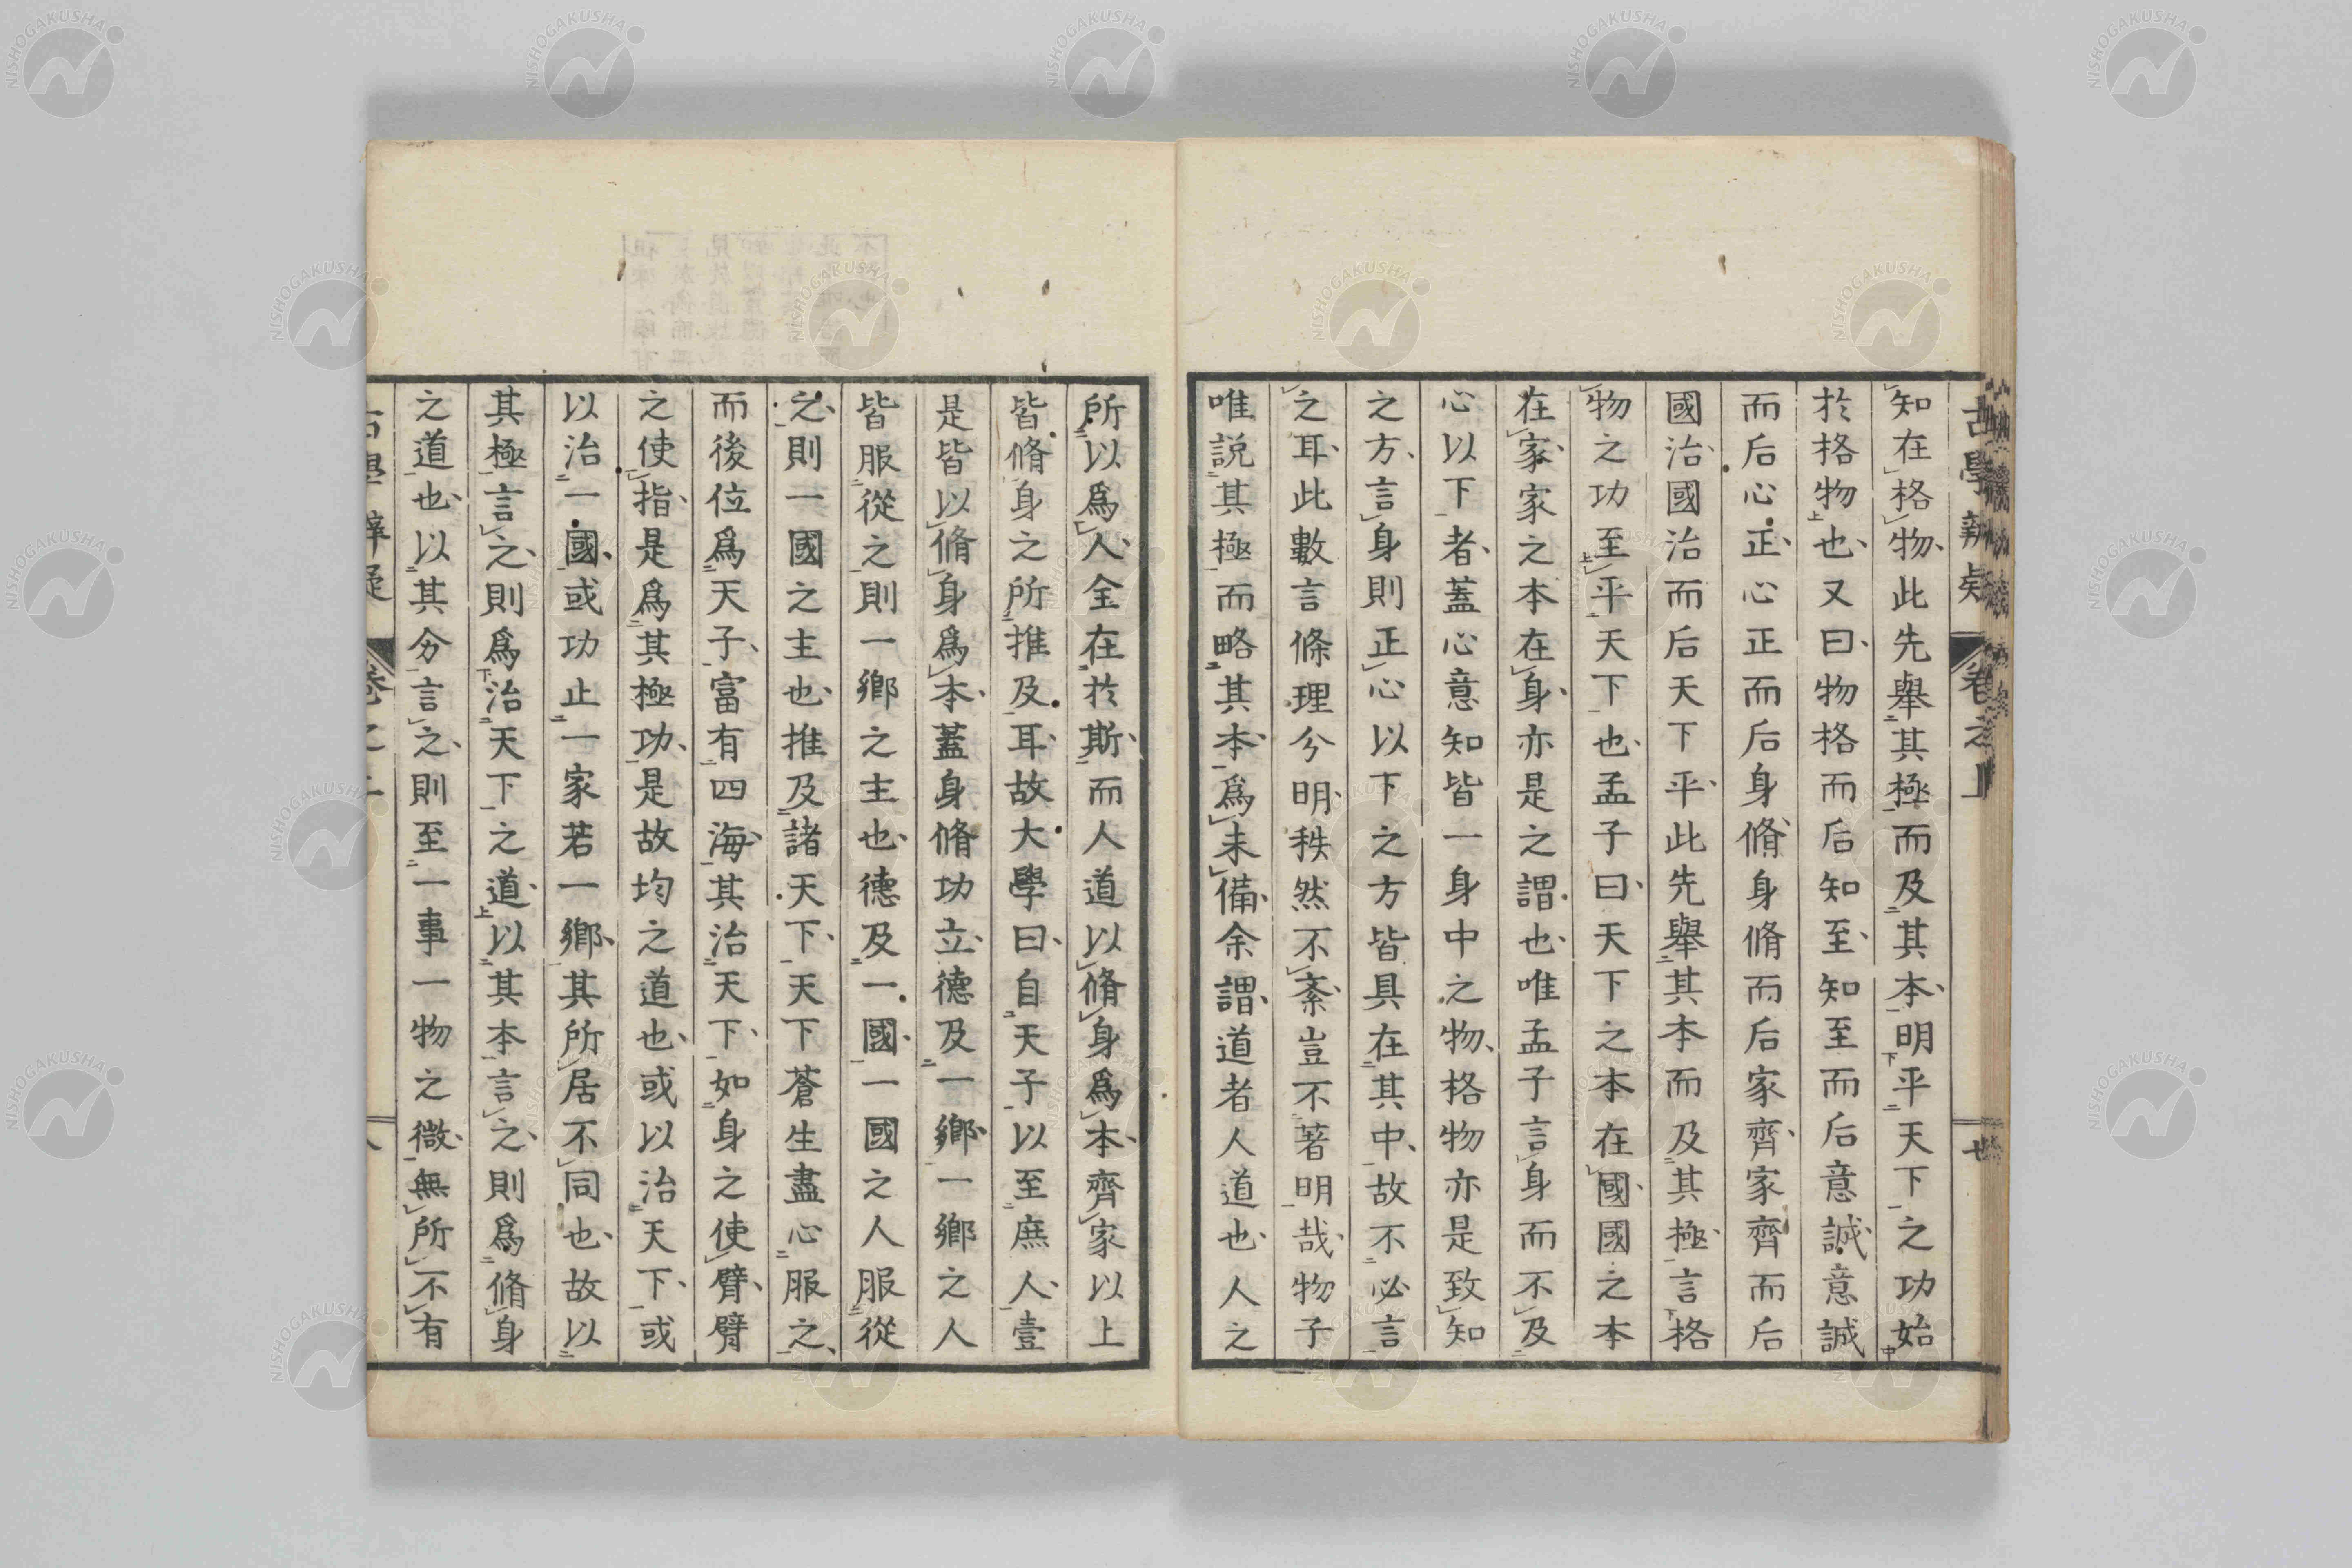 知在格物此先舉其極而及其本明平天下之功始
於格物也又曰物格而后知至知至而后意誠意誠
而后心正心正而后身脩身脩而后家齊家齊而后
國治國治而后天下平此先舉其本而及其極言格
物之功至平天下也孟子曰天下之本在國國之本
在家家之本在身亦是之謂也唯孟子言身而不及
心以下者蓋心意知皆一身中之物格物亦是致知
之方言身則正心以下之方皆具在其中故不必言
之耳此數言條理分明秩然不紊豈不著明哉物子
唯說其極而略其本爲未備余謂道者人道也人之
所以爲人全在於斯而人道以脩身爲本齊家以上
皆脩身之所推及耳故大學曰自天子以至庶人壹
是皆以脩身爲本蓋身脩功立德及一鄉一鄉之人
皆服從之則一鄉之主也德及一國一國之人服從
之則一國之主也推及諸天下天下蒼生盡心服之
而後位爲天子富有四海其治天下如身之使臂臂
之使指是爲其極功是故均之道也或以治天下或
以治一國或功止一家若一鄉其所居不同也故以
其極言之則爲治天下之道以其本言之則爲脩身
之道也以其分言之則至一事一物之微無所不有
NISHOGAKUSHA